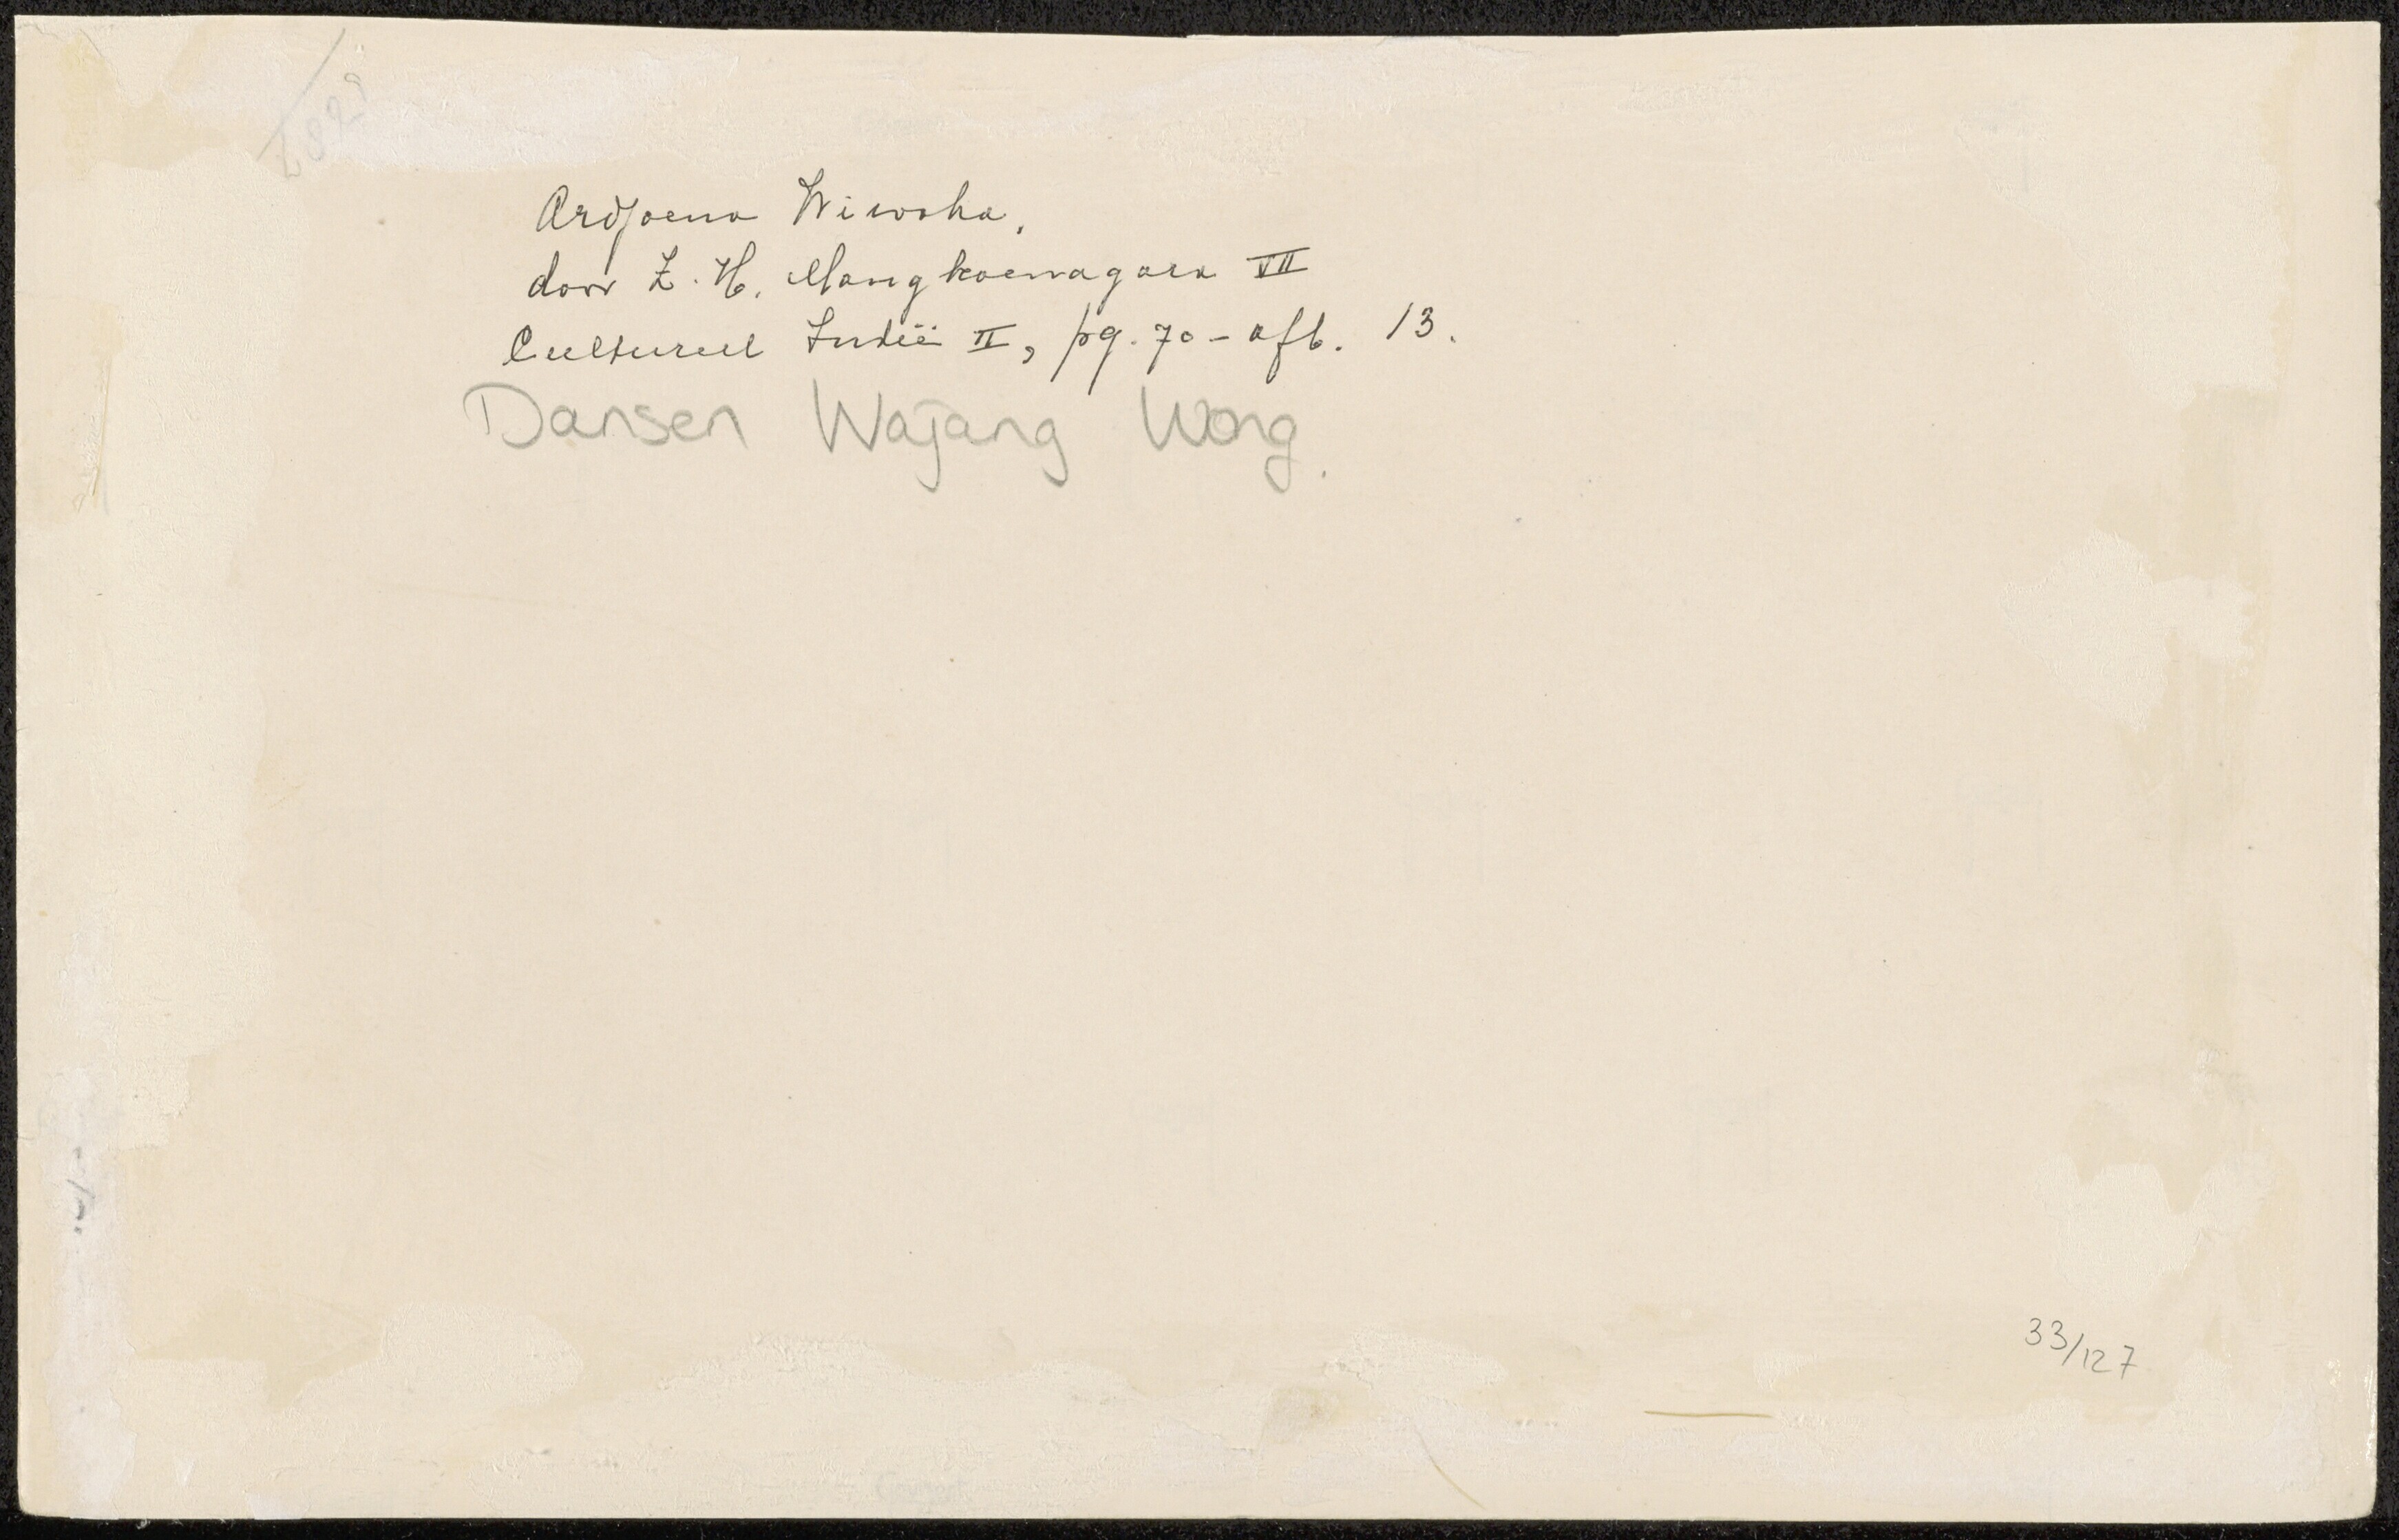 Ardjoena Wiwoha,
door Z. H. Mangkoenagara VII
Cultureel Indië II, pg. 70 - afb. 13.
Dansen Wajang Wong.
33/127